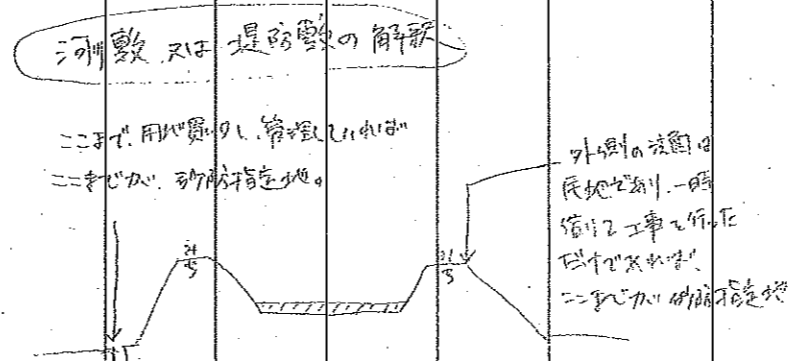 河川敷又は堤防敷の解釈
ここまで、用地買収し、管理していれば
ここまでが、砂防指定地。
外側の法面は
民地であり、一時
借りて工事を行った
だけであれば、
ここまでが砂防指定地